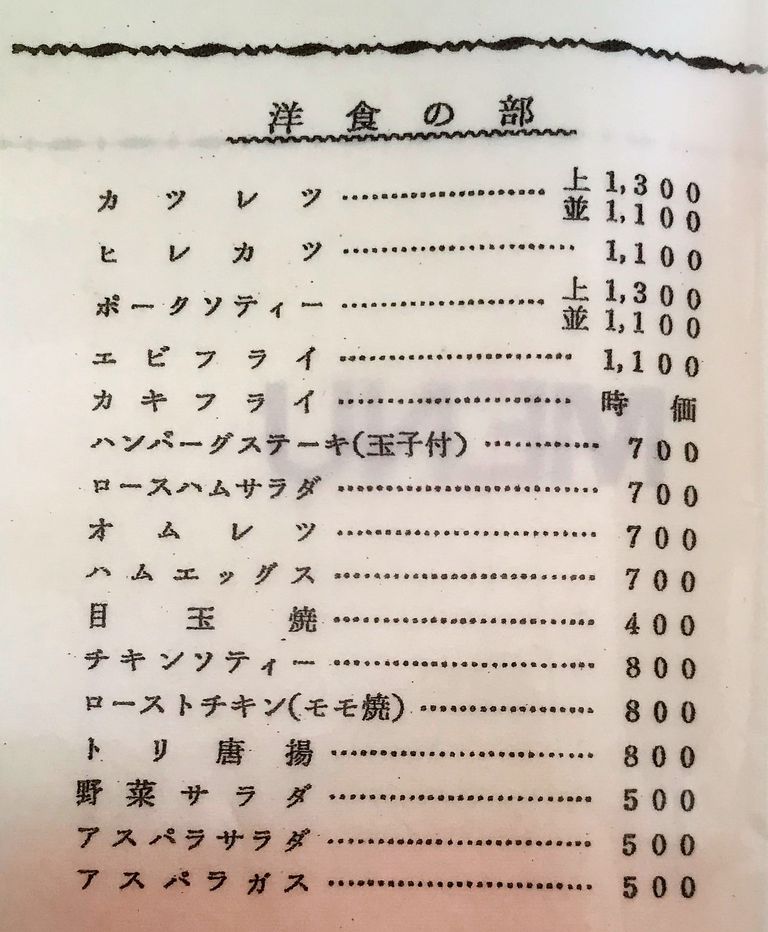 洋食の部
カツレツ……………………上 1,300
並 1,100
ヒレカツ……………………1,100
ポークソティー……………………上 1,300
並 1,100
エビフライ……………………1,100
カキフライ……………………時価
ハンバーグステーキ(玉子付)…………700
ロースハムサラダ……………………700
オムレツ……………………700
ハムエッグス……………………700
目玉焼……………………400
チキンソティー……………………800
ローストチキン(モモ焼)………………800
トリ唐揚……………………800
野菜サラダ……………………500
アスパラサラダ……………………500
アスパラガス……………………500